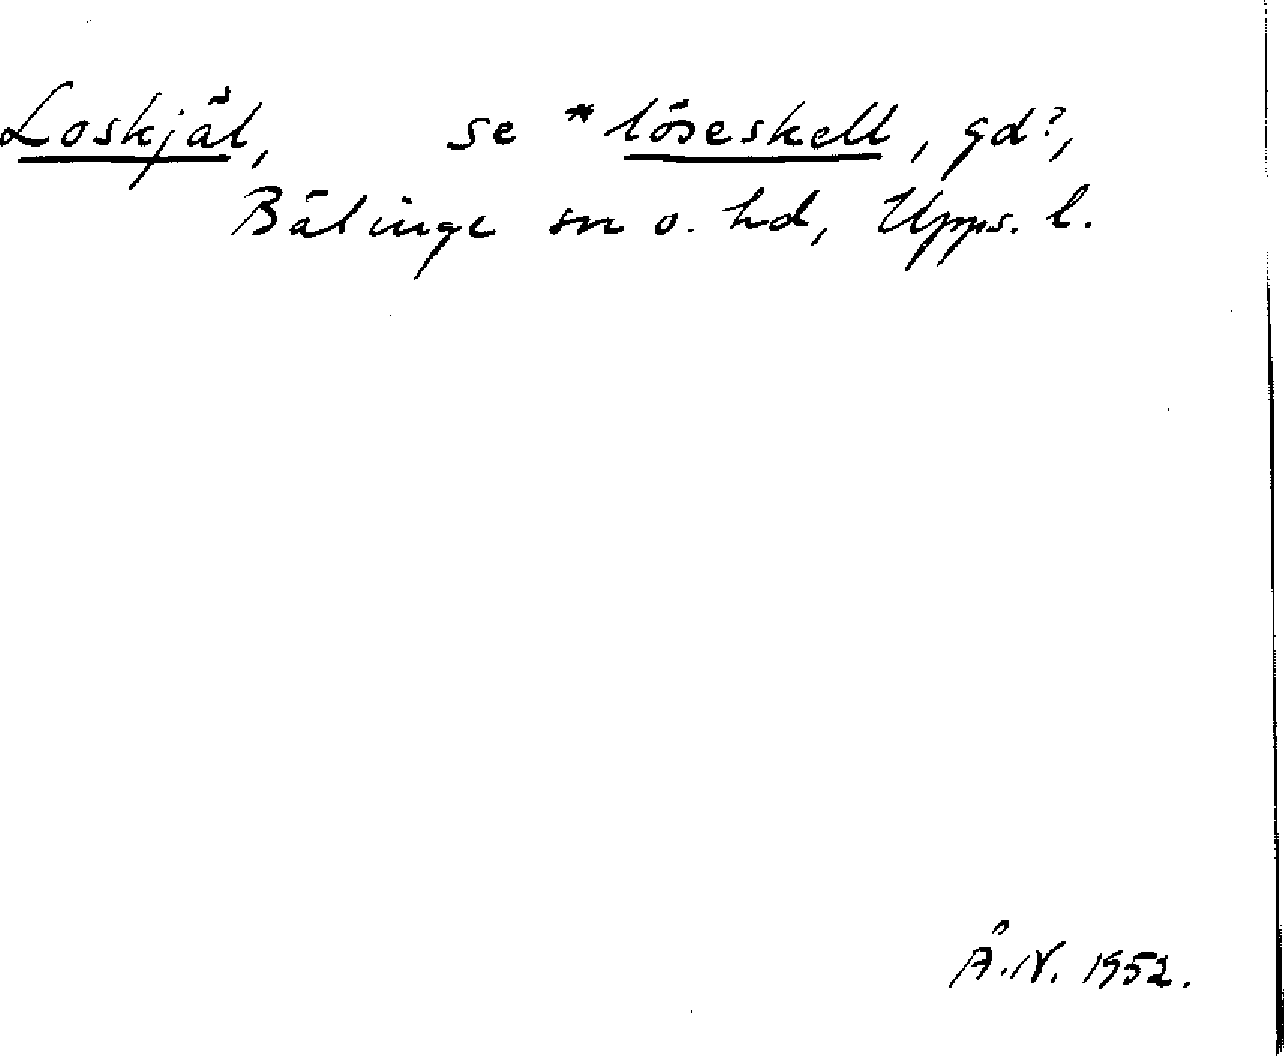 Loskjäl, se *löseskell, gd?,
Bälinge sn o. hd, Upps. l.
Å.N. 1952.